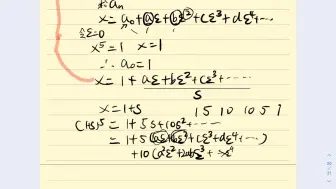 求an
x=a₀+aε+bε²+cε³+dε⁴+…
令ε=0
x⁵=1 x=1
∴a₀=1
x=1+aε+bε²+cε³+……
S
x=1+S 1 5 10 10 5 1
(1+S)⁵=1+5S+10S²+…
=1+5(aε+bε²+cε³+dε⁴+…)
+10(a²ε²+2abε³+…ε⁴